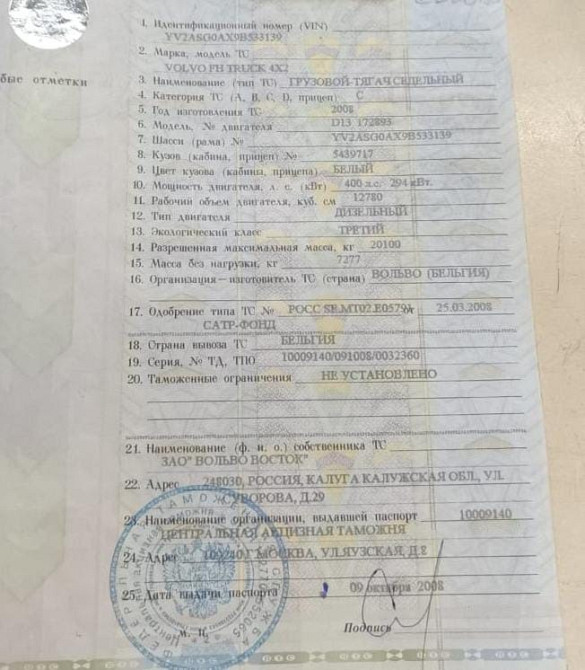 1. Идентификационный номер (VIN)
YV2ASG0AX9B533139
2. Марка, модель ТС
VOLVO FH TRUCK 4X2
бые отметки
3. Наименование (тип ТС) ГРУЗОВОЙ ТЯГАЧ СЕДЕЛЬНЫЙ
4. Категория ТС (А, В, С, D, прицеп) С
5. Год изготовления ТС 2008
6. Модель, № двигателя D13 172893
7. Шасси (рама) № YV2ASG0AX9B533139
8. Кузов (кабина, прицеп) № 5439717
9. Цвет кузова (кабины, прицепа) БЕЛЫЙ
10. Мощность двигателя, л. с. (кВт) 400 л.с. 294 кВт.
11. Рабочий объем двигателя, куб. см 12780
12. Тип двигателя ДИЗЕЛЬНЫЙ
13. Экологический класс ТРЕТИЙ
14. Разрешенная максимальная масса, кг 20100
15. Масса без нагрузки, кг 7277
16. Организация—изготовитель ТС (страна) ВОЛЬВО (БЕЛЬГИЯ)
17. Одобрение типа ТС № РОСС SE.MT02.E05791 25.03.2008
САТР-ФОНД
18. Страна вывоза ТС БЕЛЬГИЯ
19. Серия, № ТД, ТПО 10009140/091008/0032360
20. Таможенные ограничения НЕ УСТАНОВЛЕНО
21. Наименование (ф. и. о.) собственника ТС
ЗАО" ВОЛЬВО ВОСТОК"
22. Адрес 248030, РОССИЯ, КАЛУГА КАЛУЖСКАЯ ОБЛ., УЛ.
СУВОРОВА, Д.29
23. Наименование организации, выдавшей паспорт 10009140
ЦЕНТРАЛЬНАЯ АКЦИЗНАЯ ТАМОЖНЯ
24. Адрес 109240 Г МОСКВА, УЛ.ЯУЗСКАЯ, Д.8
25. Дата выдачи паспорта 09 октября 2008
М. П. Подпись